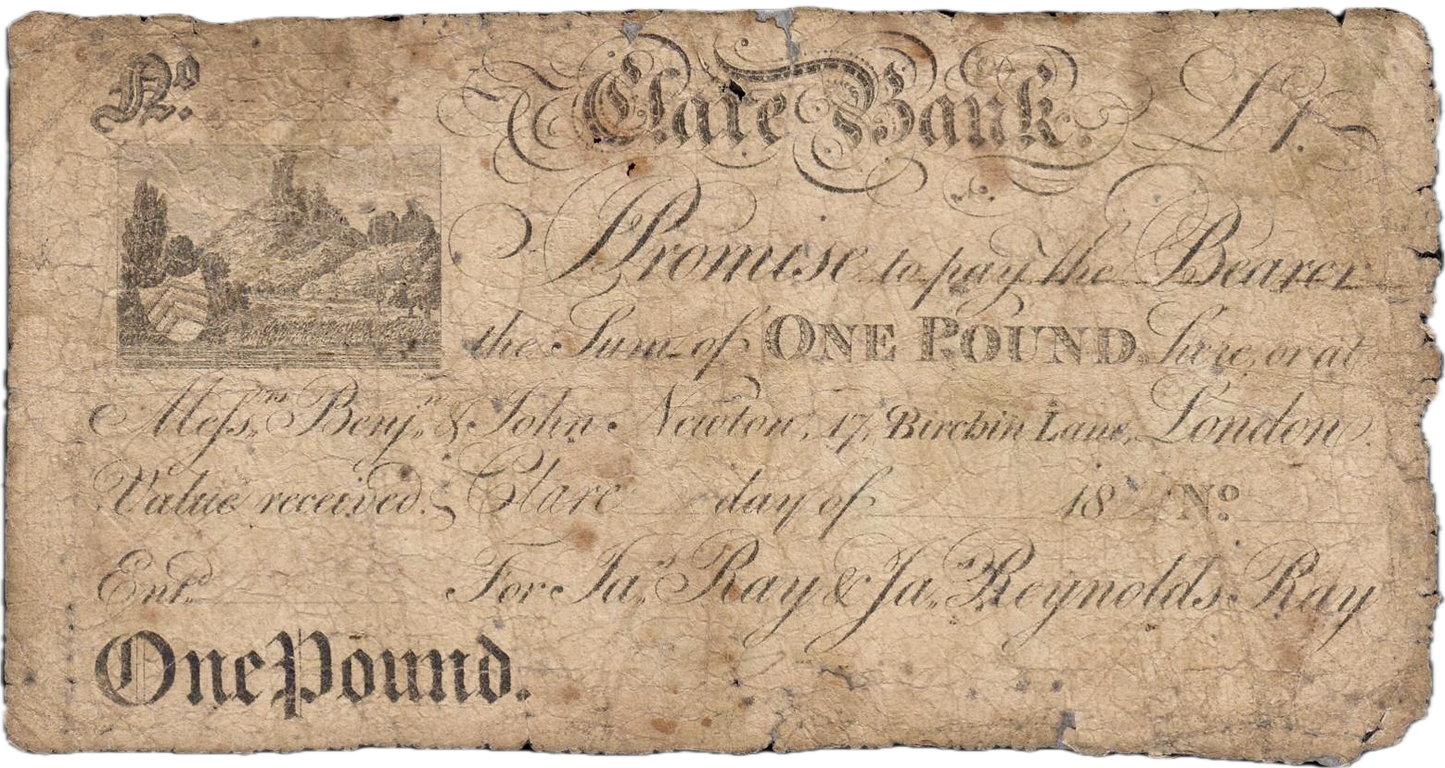 No. Clare Bank. £1.
I Promise to pay the Bearer
the Sum of ONE POUND here, or at
Messrs. Benjn. & John Newton, 17, Birchin Lane, London.
Value received. Clare day of 18 No.
Entd. For Jas. Ray & Ja. Reynolds Ray
One Pound.